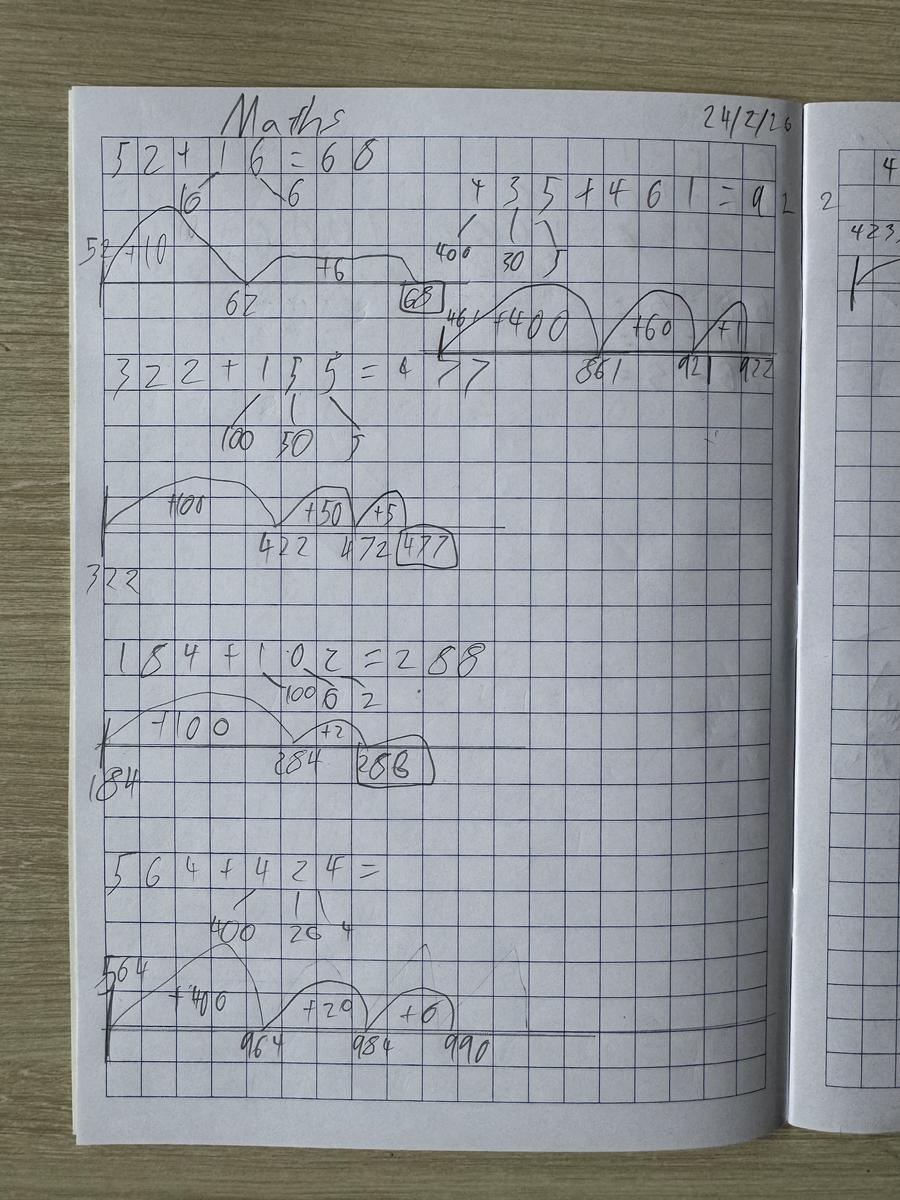 Maths
24/2/26
52+16=68
10 6
52 +10 +6
62 68
435+461=922
400 30 5
461 +400 +60 +1
861 921 922
322+155=477
100 50 5
+100 +50 +5
422 472 477
322
184+102=288
100 0 2
+100 +2
284 288
184
564+424=
400 20 4
564
+400 +20 +6
964 984 990
4
423